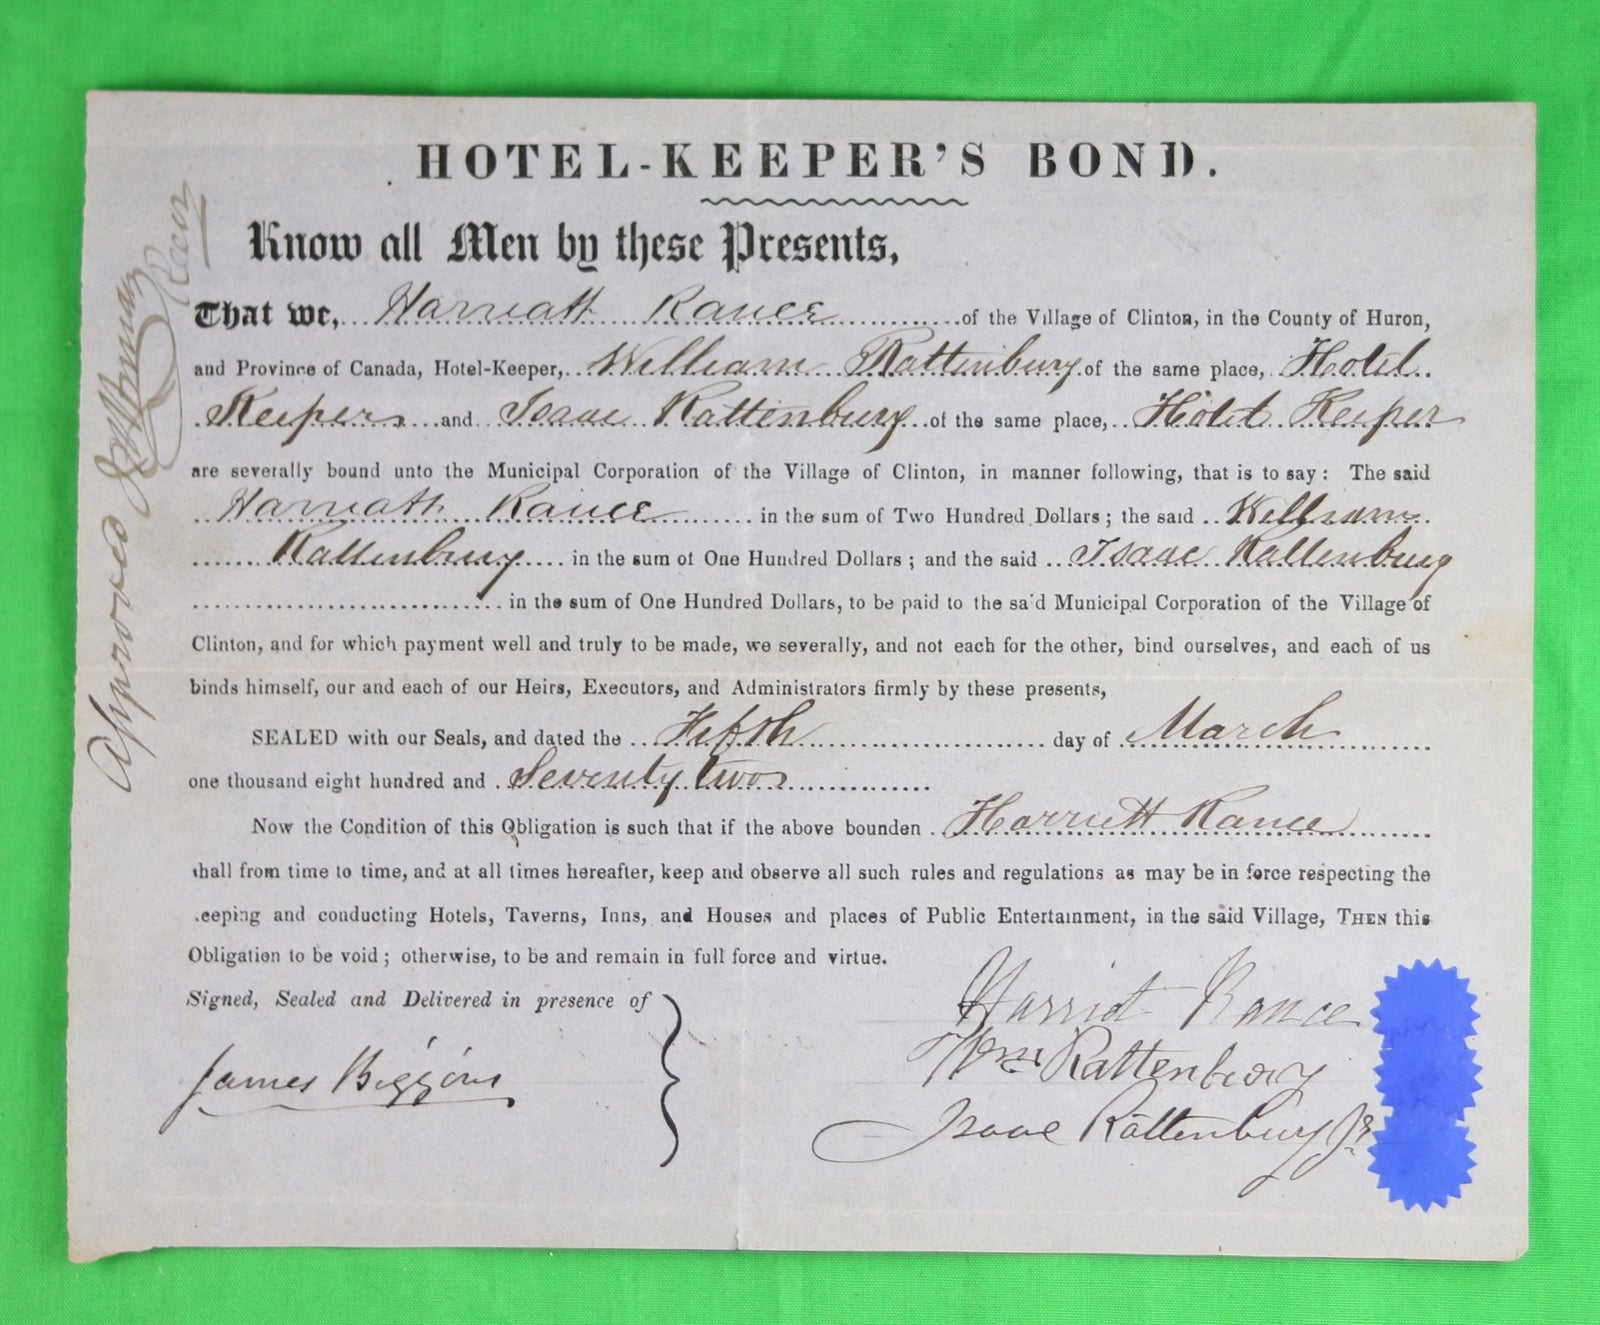 HOTEL-KEEPER'S BOND.
Know all Men by these Presents,
That we, Harrieatt Rance of the Village of Clinton, in the County of Huron,
and Province of Canada, Hotel-Keeper, William Rattenbury of the same place, Hotel
Keeper and Isaac Rattenbury of the same place, Hotel Keeper
are severally bound unto the Municipal Corporation of the Village of Clinton, in manner following, that is to say: The said
Harrieatt Rance in the sum of Two Hundred Dollars; the said William
Rattenbury in the sum of One Hundred Dollars; and the said Isaac Rattenbury
in the sum of One Hundred Dollars, to be paid to the said Municipal Corporation of the Village of
Clinton, and for which payment well and truly to be made, we severally, and not each for the other, bind ourselves, and each of us
binds himself, our and each of our Heirs, Executors, and Administrators firmly by these presents,
SEALED with our Seals, and dated the Fifth day of March
one thousand eight hundred and Seventy two
Now the Condition of this Obligation is such that if the above bounden Harriett Rance
shall from time to time, and at all times hereafter, keep and observe all such rules and regulations as may be in force respecting the
keeping and conducting Hotels, Taverns, Inns, and Houses and places of Public Entertainment, in the said Village, THEN this
Obligation to be void; otherwise, to be and remain in full force and virtue.
Signed, Sealed and Delivered in presence of
James Biggins
Harriet Rance
Wm Rattenbury
Isaac Rattenbury Jr
Approved
Reeve